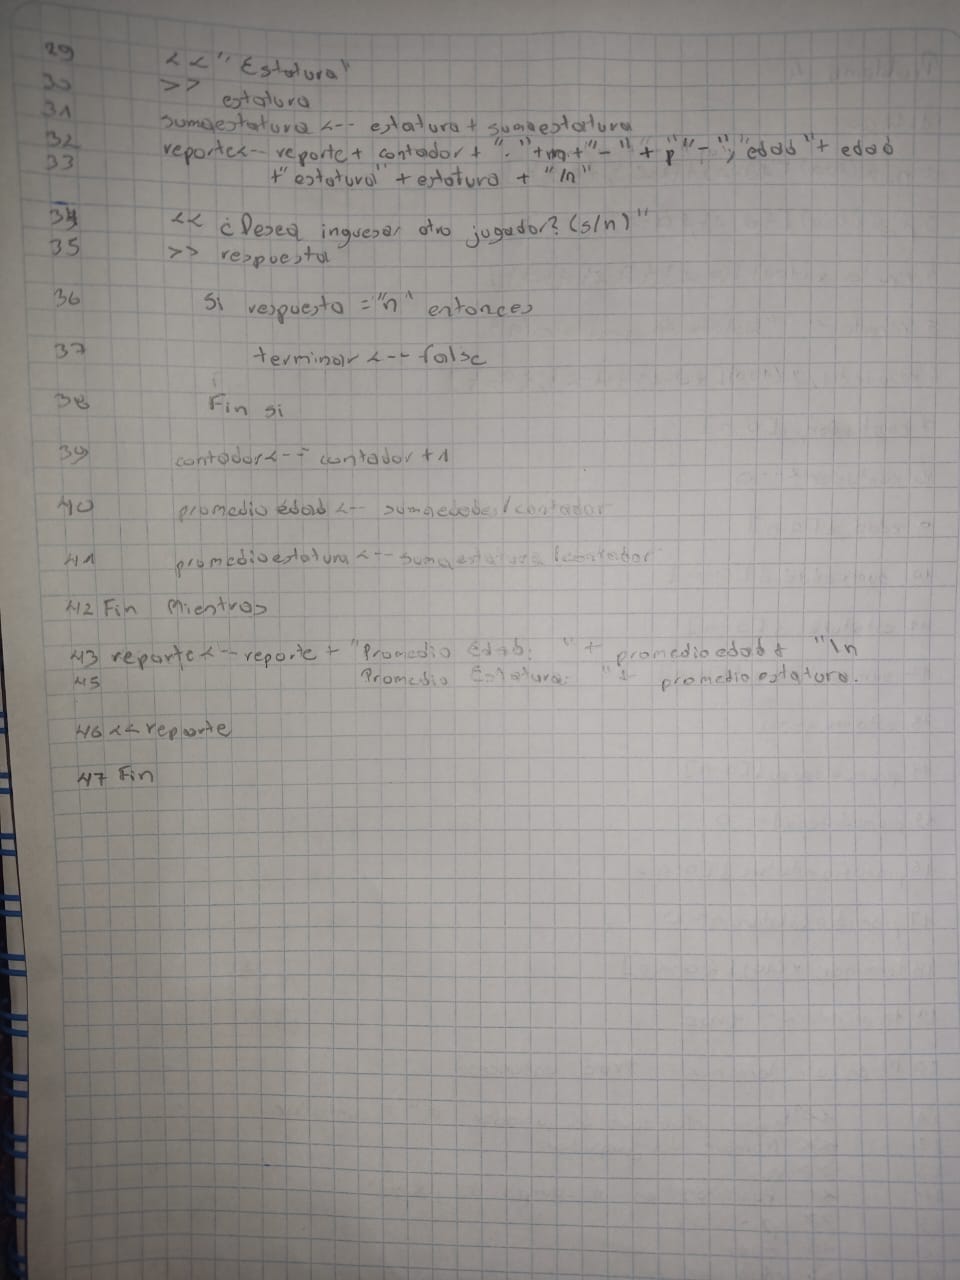 29 << "Estatura"
30 >> estatura
31 sumaestatura <-- estatura + sumaestatura
32 reporte<-- reporte + contador + "." + m + "-" + p "-"; "edad" + edad
33 + "estatura" + estatura + "\n"
34 << ¿Desea ingresar otro jugador? (s/n)"
35 >> respuesta
36 Si respuesta = "n" entonces
37 terminar <-- false
38 Fin si
39 contador<-- contador + 1
40 promedio edad <-- sumaedades / contador
41 promedioestatura <-- sumaestatura / contador
42 Fin Mientras
43 reporte <-- reporte + "Promedio Edad: " + promedio edad + "\n
45 Promedio Estatura: "+ promedio estatura.
46 << reporte
47 Fin